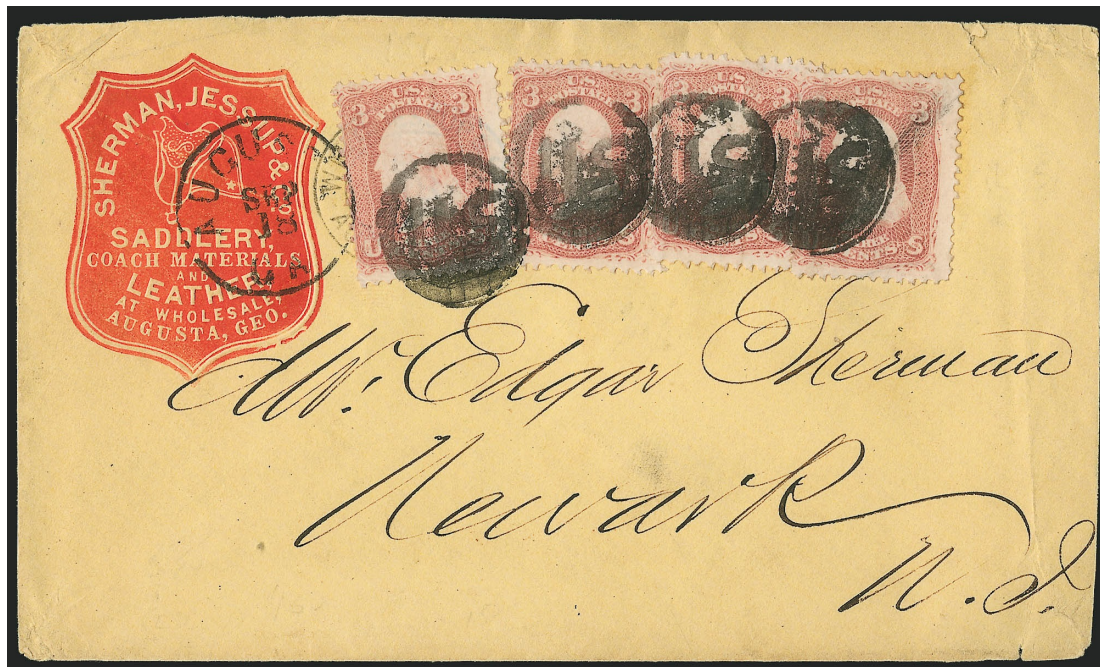 SHERMAN, JESSUP & CO.
SADDLERY,
COACH MATERIALS
AND
LEATHER,
AT WHOLESALE,
AUGUSTA, GEO.
AUGUS
SEP
18
GA
3 U.S. POSTAGE 3
U
3 U.S. 3
S
3 U.S. 3
U.S. POSTAGE 3
CENTS S
US
US
US
US
Mr. Edgar Sherman
Newark
N. J.